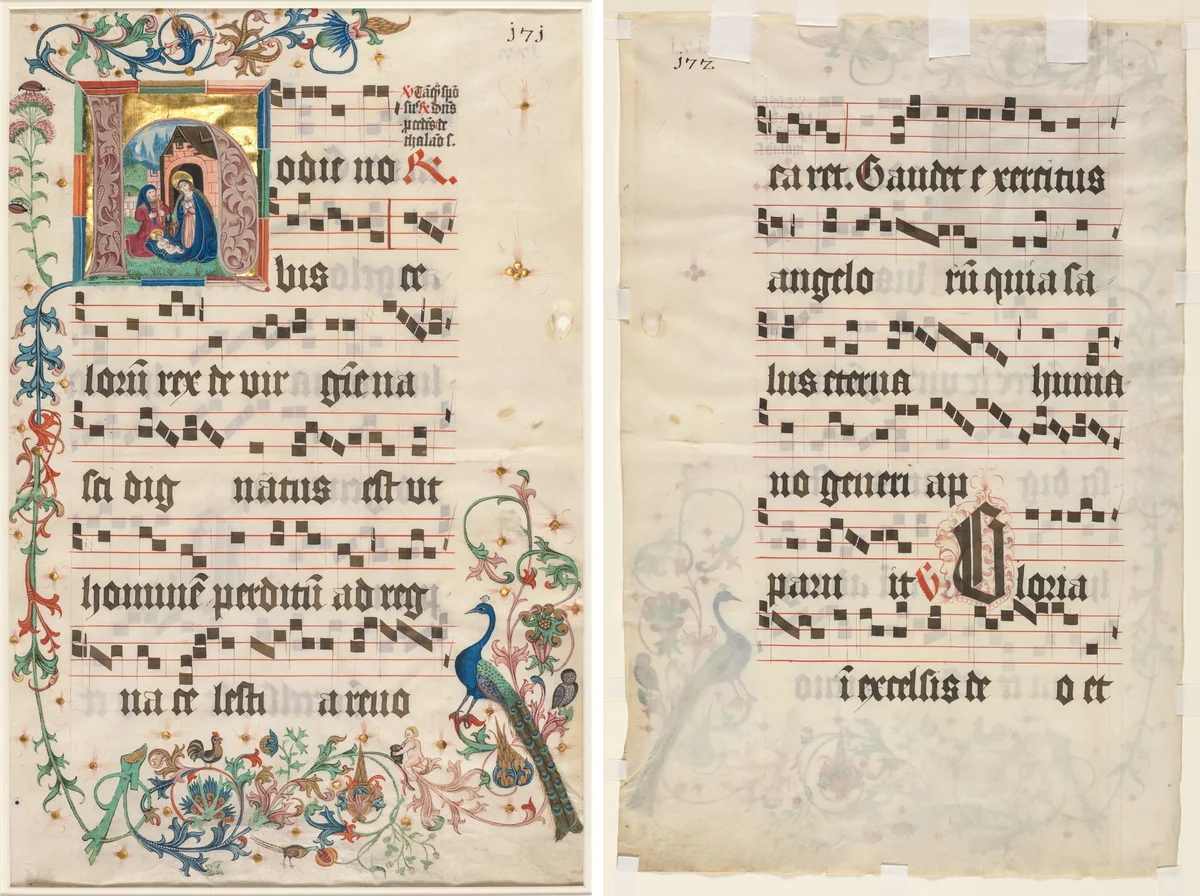 171
V Tāq̄ spō
sus R dn̄s
p̄cedēs de
thalāo s.
Hodie no R.
bis ce
lorū rex de vir gīe na
sci dig natus est ut
hominē perditū ad reg
na ce lesti a revo
172
caret. Gaudet exercitus
angelo rū quia sa
lus eterna huma
no generi ap
paru it V Gloria
ī excelsis de o et